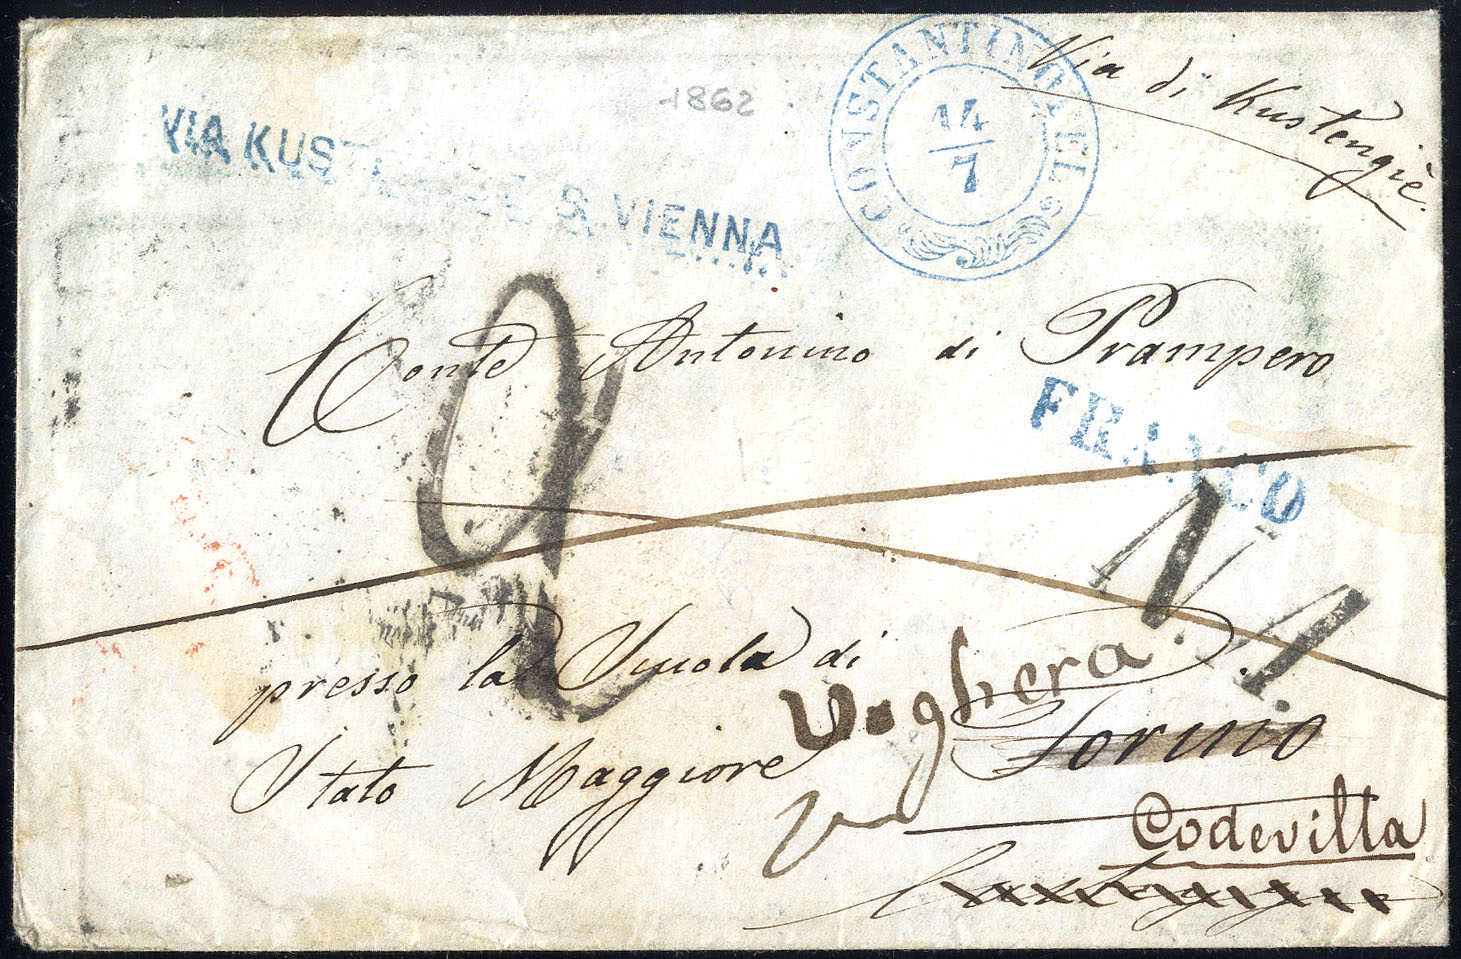 1862
CONSTANTINOPEL
14
7
Via di Kustengiè.
VIA KUST & VIENNA
Conte Antonino di Prampero
FRANCO
N. 1.
presso la Scuola di
Voghera
Stato Maggiore
Torino
Codevilla